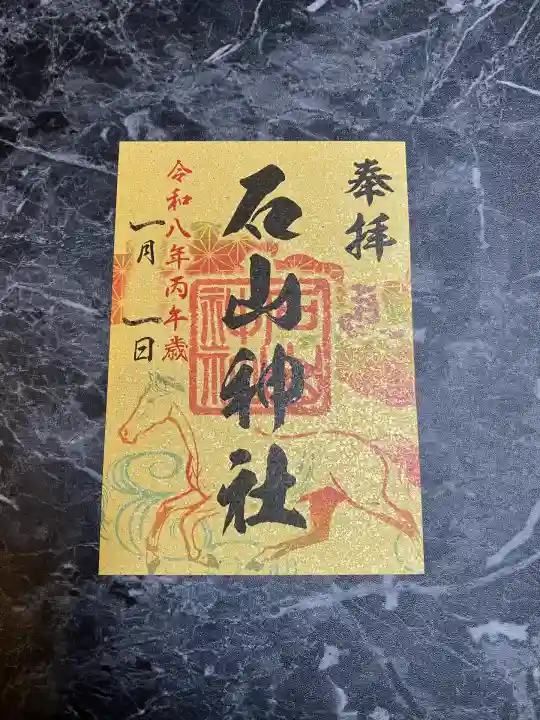 奉拝
石山神社
令和八年丙午歳
一月 一日